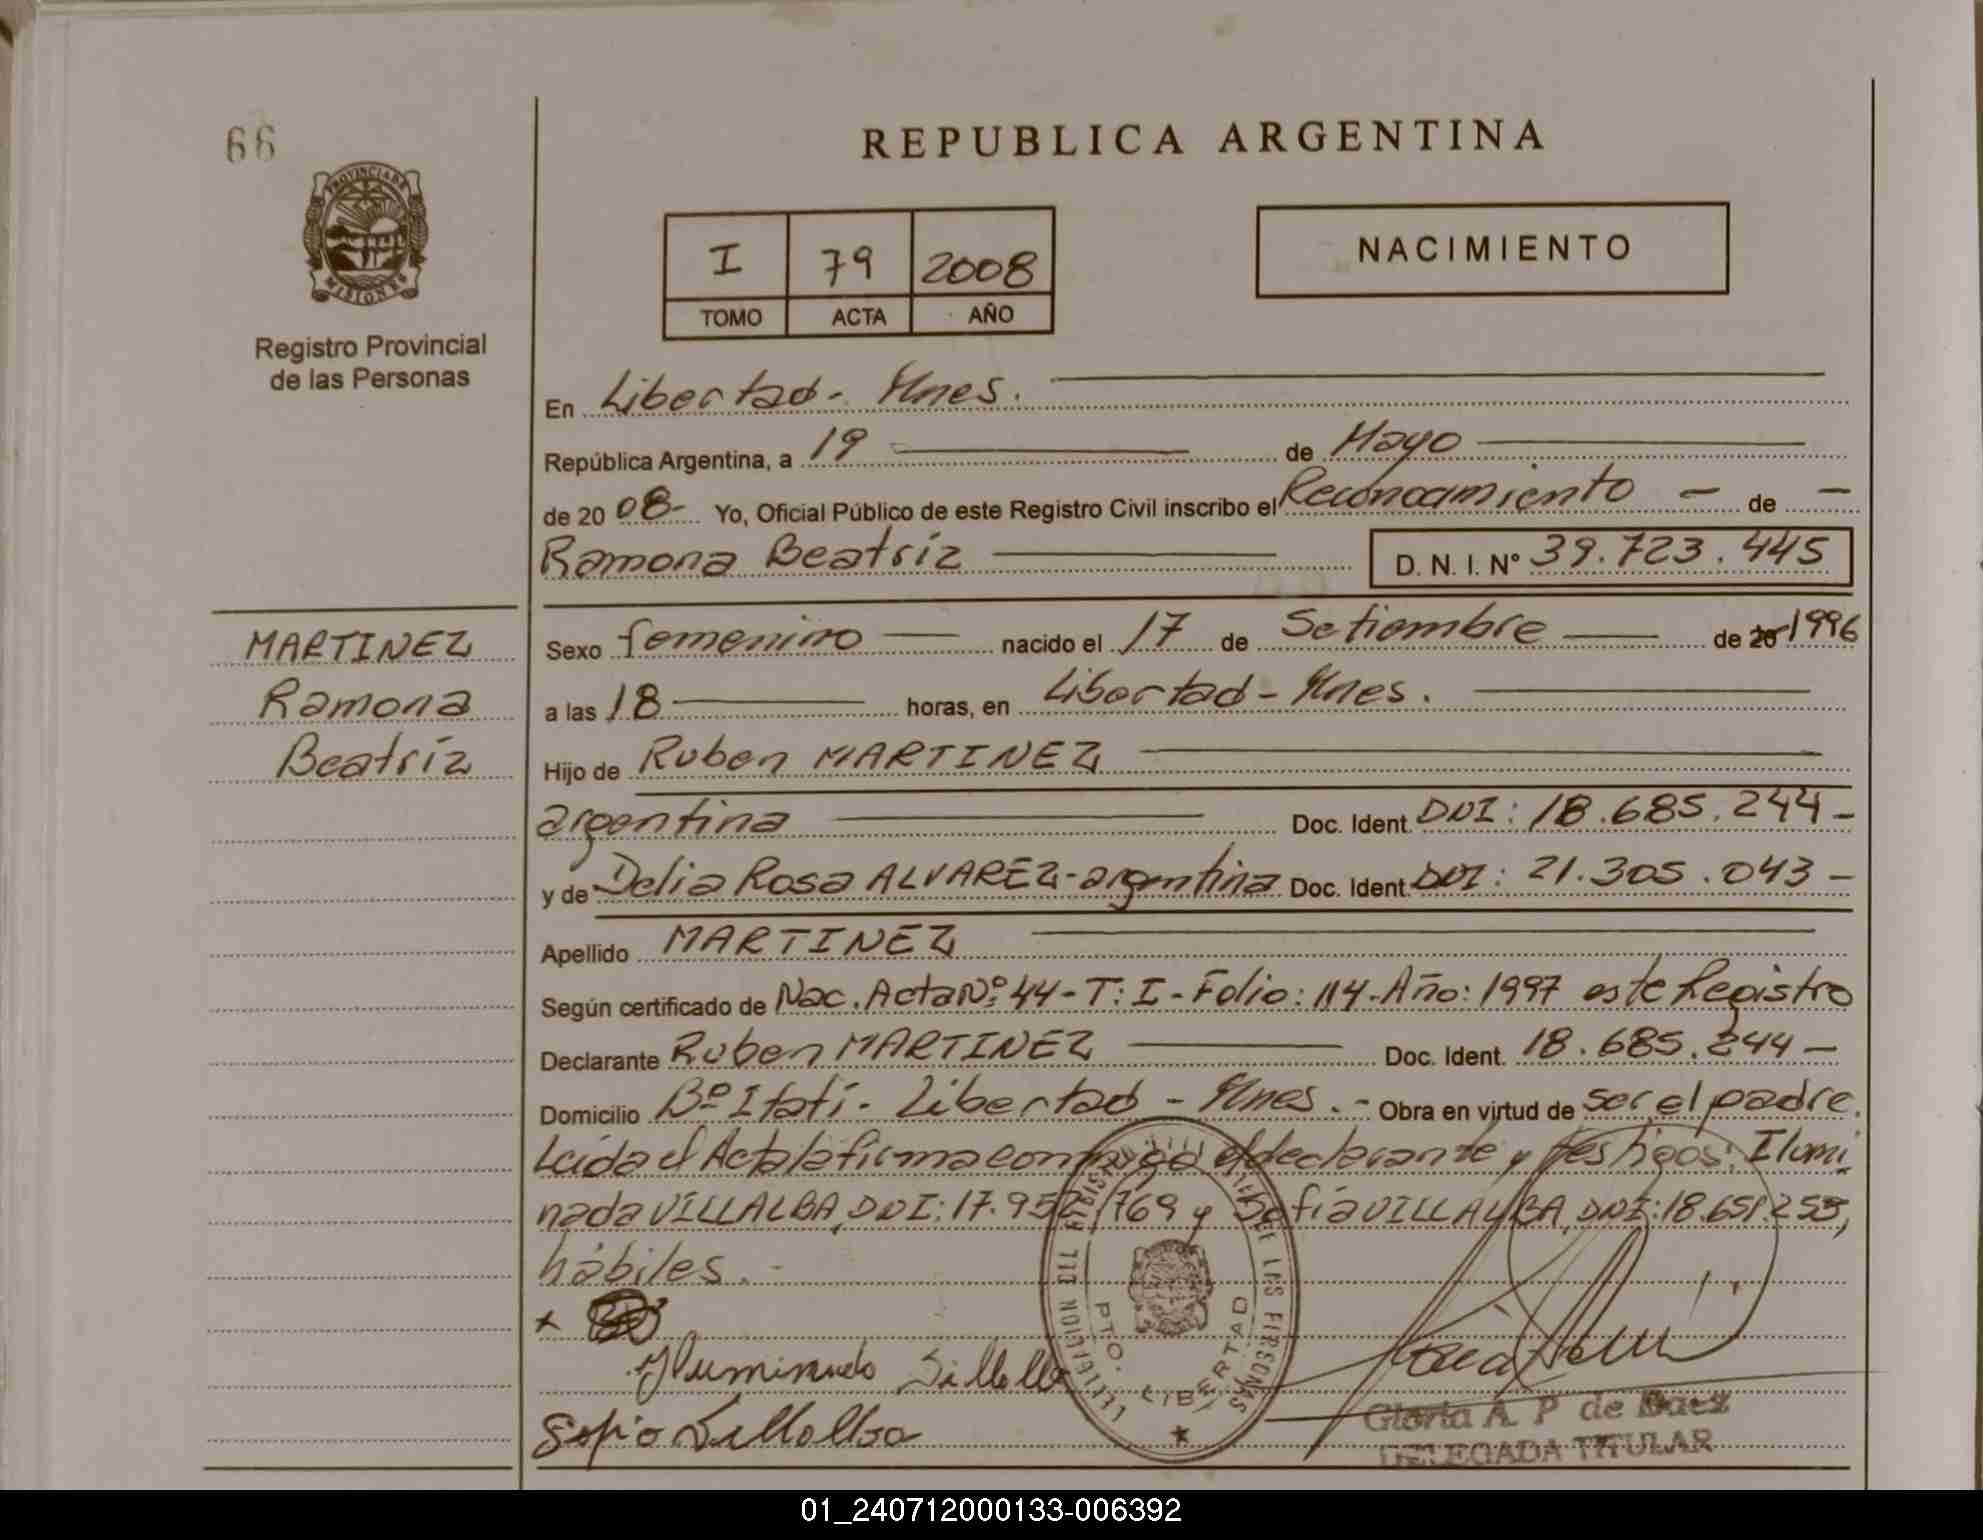 66
REPUBLICA ARGENTINA
PROVINCIA DE
MISIONES
Registro Provincial
de las Personas
I 79 2008
TOMO ACTA AÑO
NACIMIENTO
En Libertad - Mnes.
República Argentina, a 19 de Mayo
de 20 08- Yo, Oficial Público de este Registro Civil inscribo el Reconocimiento - de -
Ramona Beatríz D. N. I. Nº 39.723.445
MARTINEZ
Ramona
Beatríz
Sexo femenino nacido el 17 de Setiembre de 20 1996
a las 18 horas, en Libertad - Mnes.
Hijo de Ruben MARTINEZ
argentina Doc. Ident. DNI: 18.685.244-
y de Delia Rosa ALVAREZ-argentina Doc. Ident. DNI: 21.305.043-
Apellido MARTINEZ
Según certificado de Nac. Acta Nº: 44- T: I - Folio: 114- Año: 1997 este Registro
Declarante Ruben MARTINEZ Doc. Ident. 18.685.244-
Domicilio Bº Itatí - Libertad - Mnes. - Obra en virtud de ser el padre.
Leída el Acta la firma conmigo el declarante y testigos: Ilumi
nada VILLALBA, DNI: 17.952.769 y Sofía VILLALBA, DNI: 18.651.253,
hábiles. -
PTO. LIBERTAD
DE LAS PERSONAS
Gloria A. P. de Baez
DELEGADA TITULAR
Sofia Villalba
01_240712000133-006392